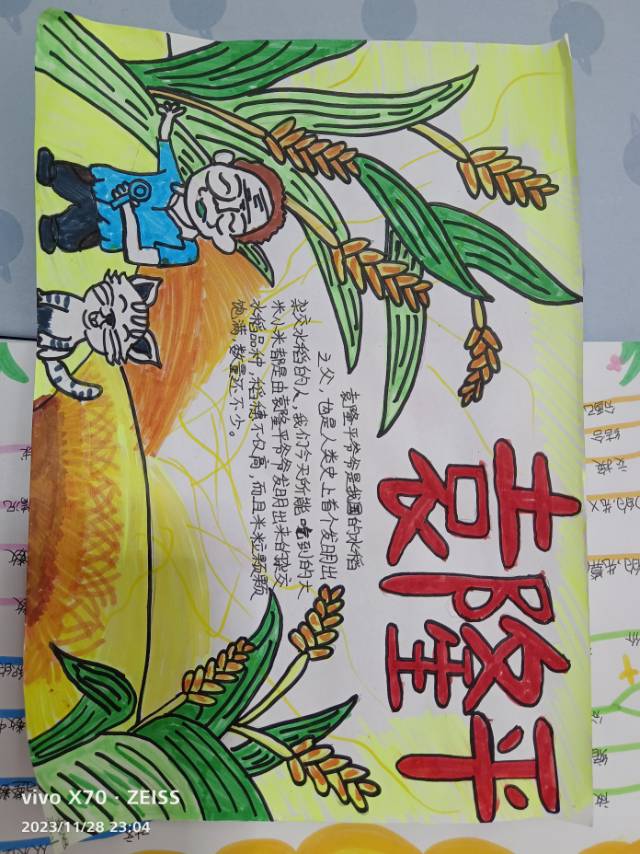 袁隆平
袁隆平爷爷是我国的水稻
之父,也是人类史上首个发明出
杂交水稻的人,我们今天所能吃到的大
米小米都是由袁隆平爷爷发明出来的杂交
水稻品种,稻穗不仅高,而且米粒颗颗
饱满,数量还不少。
vivo X70 · ZEISS
2023/11/28 23:04
分配
结合
交换